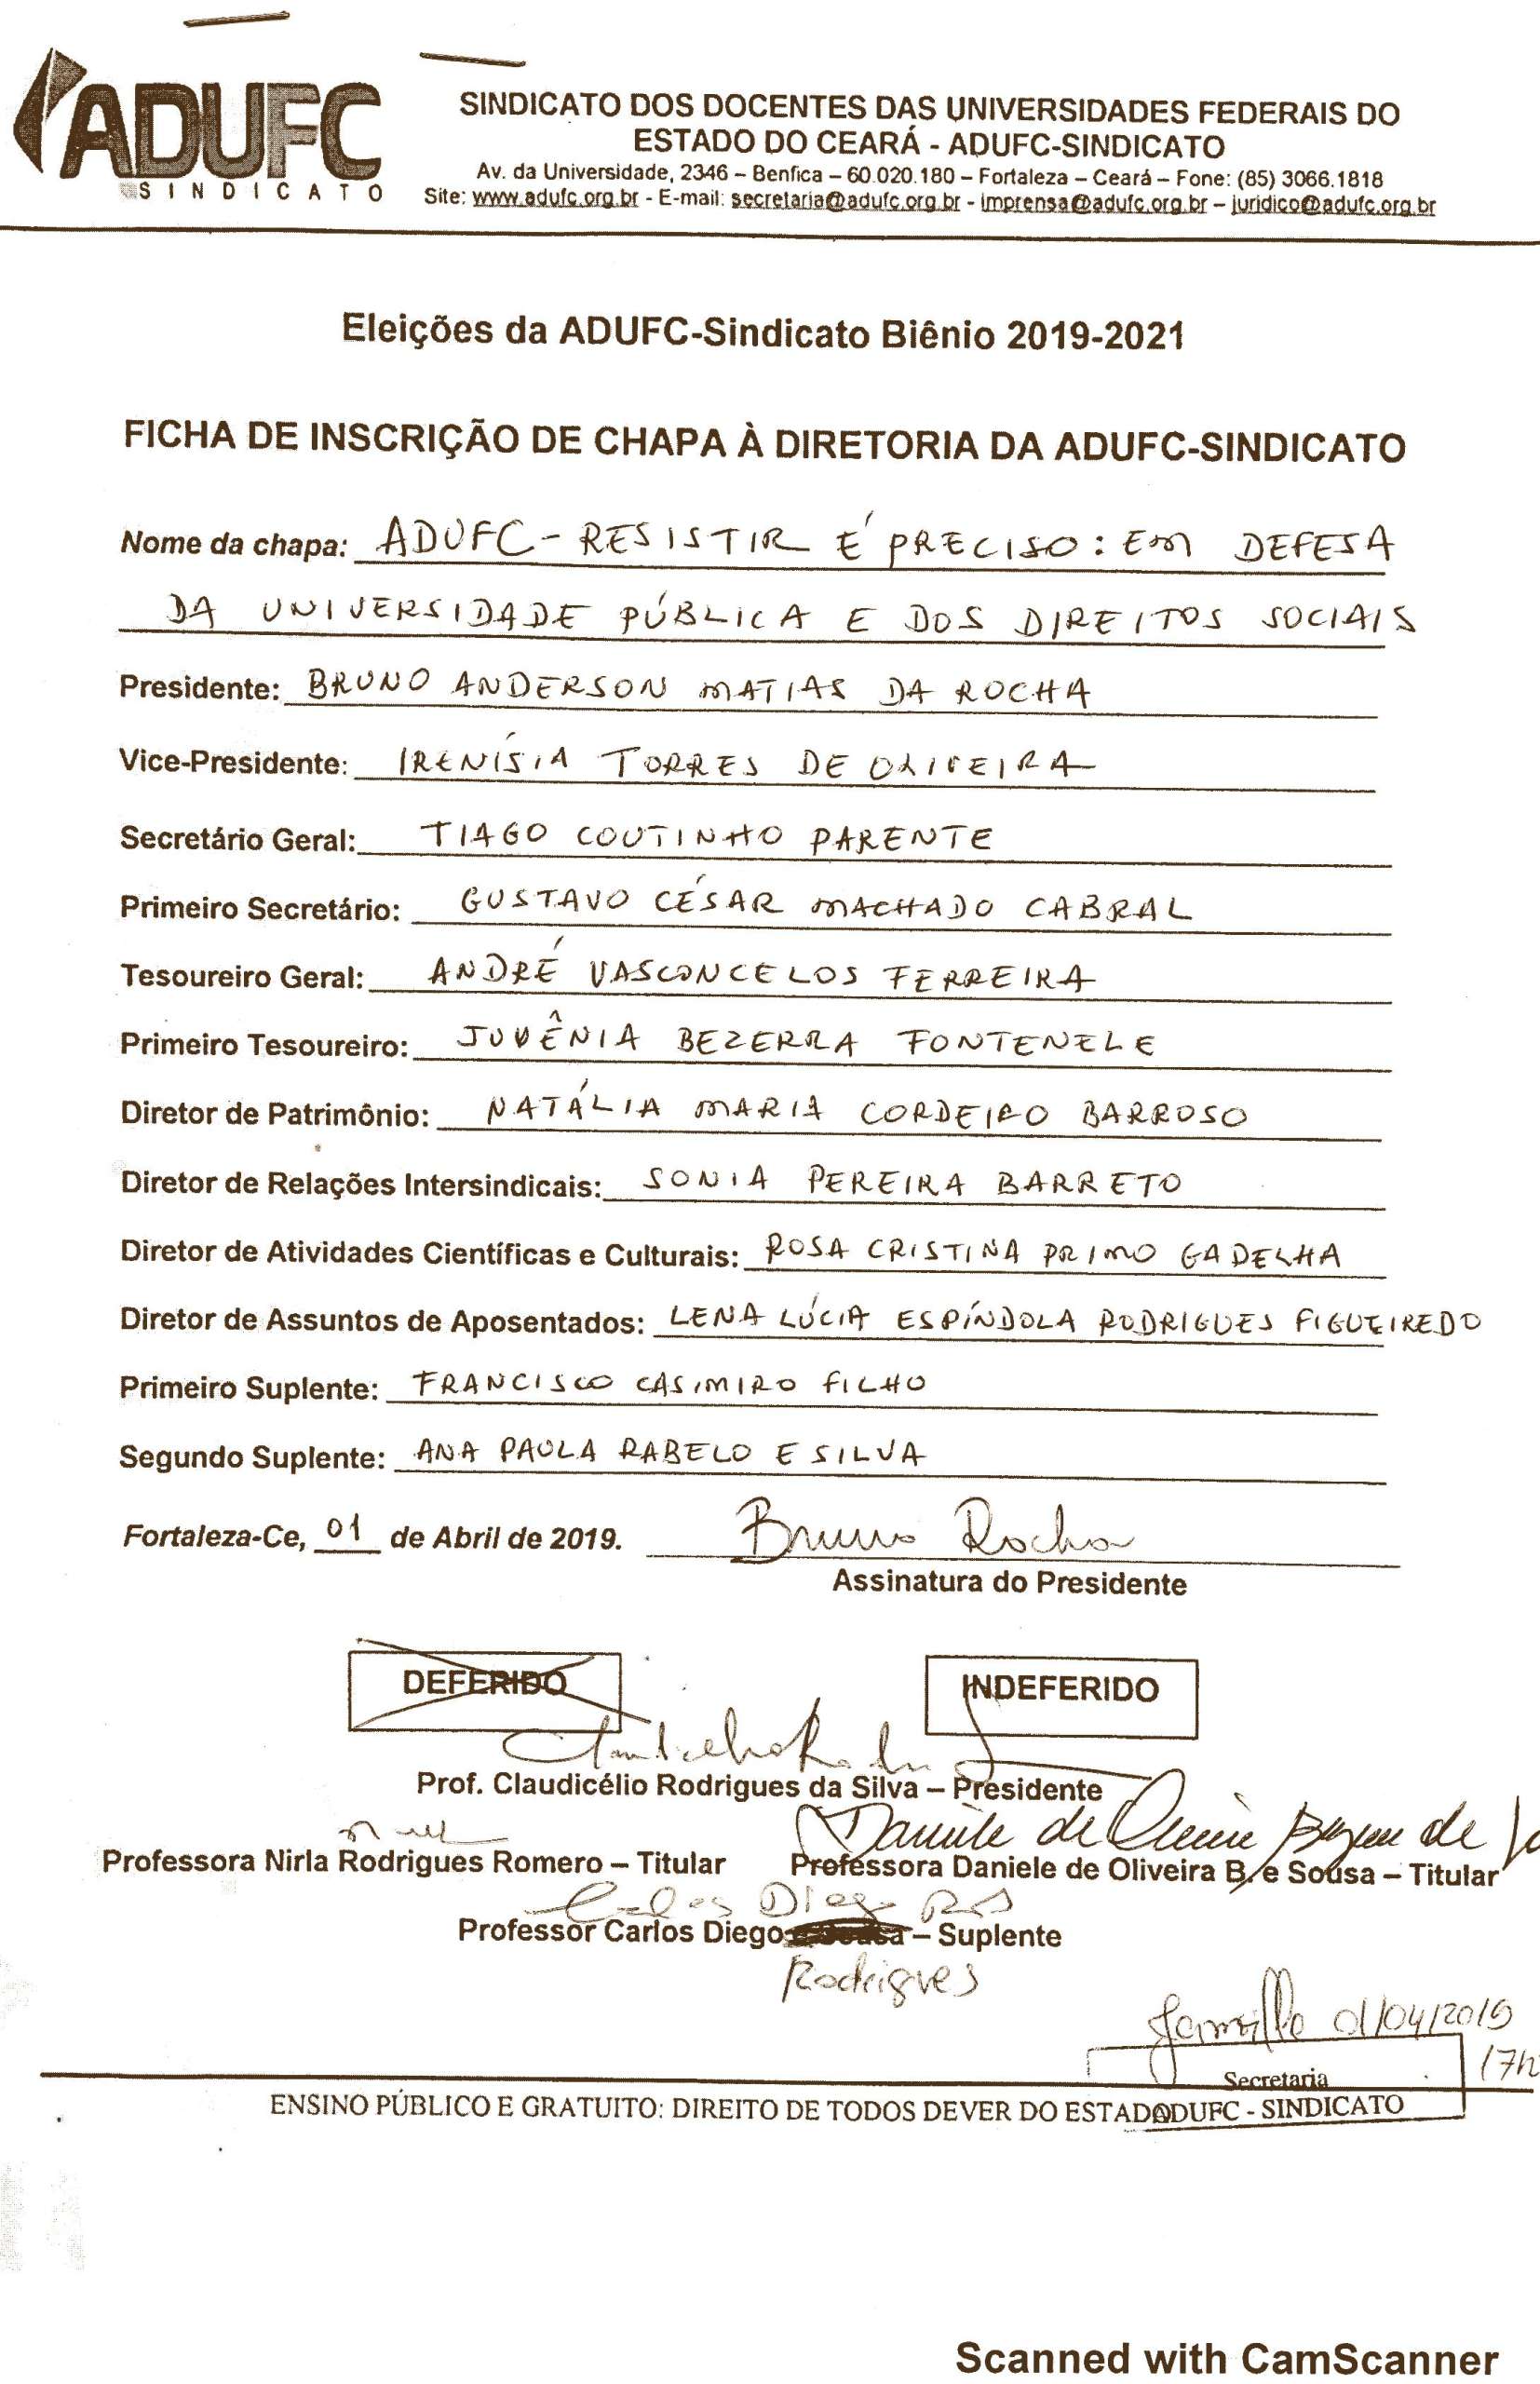 ADUFC
SINDICATO
SINDICATO DOS DOCENTES DAS UNIVERSIDADES FEDERAIS DO
ESTADO DO CEARÁ - ADUFC-SINDICATO
Av. da Universidade, 2346 – Benfica – 60.020.180 – Fortaleza – Ceará – Fone: (85) 3066.1818
Site: www.adufc.org.br - E-mail: secretaria@adufc.org.br - imprensa@adufc.org.br – juridico@adufc.org.br
Eleições da ADUFC-Sindicato Biênio 2019-2021
FICHA DE INSCRIÇÃO DE CHAPA À DIRETORIA DA ADUFC-SINDICATO
Nome da chapa: ADUFC - RESISTIR É PRECISO: EM DEFESA
DA UNIVERSIDADE PÚBLICA E DOS DIREITOS SOCIAIS
Presidente: BRUNO ANDERSON MATIAS DA ROCHA
Vice-Presidente: IRENÍSIA TORRES DE OLIVEIRA
Secretário Geral: TIAGO COUTINHO PARENTE
Primeiro Secretário: GUSTAVO CÉSAR MACHADO CABRAL
Tesoureiro Geral: ANDRÉ VASCONCELOS FERREIRA
Primeiro Tesoureiro: JUVÊNIA BEZERRA FONTENELE
Diretor de Patrimônio: NATÁLIA MARIA CORDEIRO BARROSO
Diretor de Relações Intersindicais: SONIA PEREIRA BARRETO
Diretor de Atividades Científicas e Culturais: ROSA CRISTINA PRIMO GADELHA
Diretor de Assuntos de Aposentados: LENA LÚCIA ESPÍNDOLA RODRIGUES FIGUEIREDO
Primeiro Suplente: FRANCISCO CASIMIRO FILHO
Segundo Suplente: ANA PAULA RABELO E SILVA
Fortaleza-Ce, 01 de Abril de 2019. Bruno Rocha
Assinatura do Presidente
DEFERIDO INDEFERIDO
Prof. Claudicélio Rodrigues da Silva – Presidente
Daniele de
Professora Nirla Rodrigues Romero – Titular Professora Daniele de Oliveira B. e Sousa – Titular
Carlos Diego
Professor Carlos Diego – Suplente
Rodrigues
01/04/2019
17h
Secretaria
ENSINO PÚBLICO E GRATUITO: DIREITO DE TODOS DEVER DO ESTADO ADUFC - SINDICATO
Scanned with CamScanner